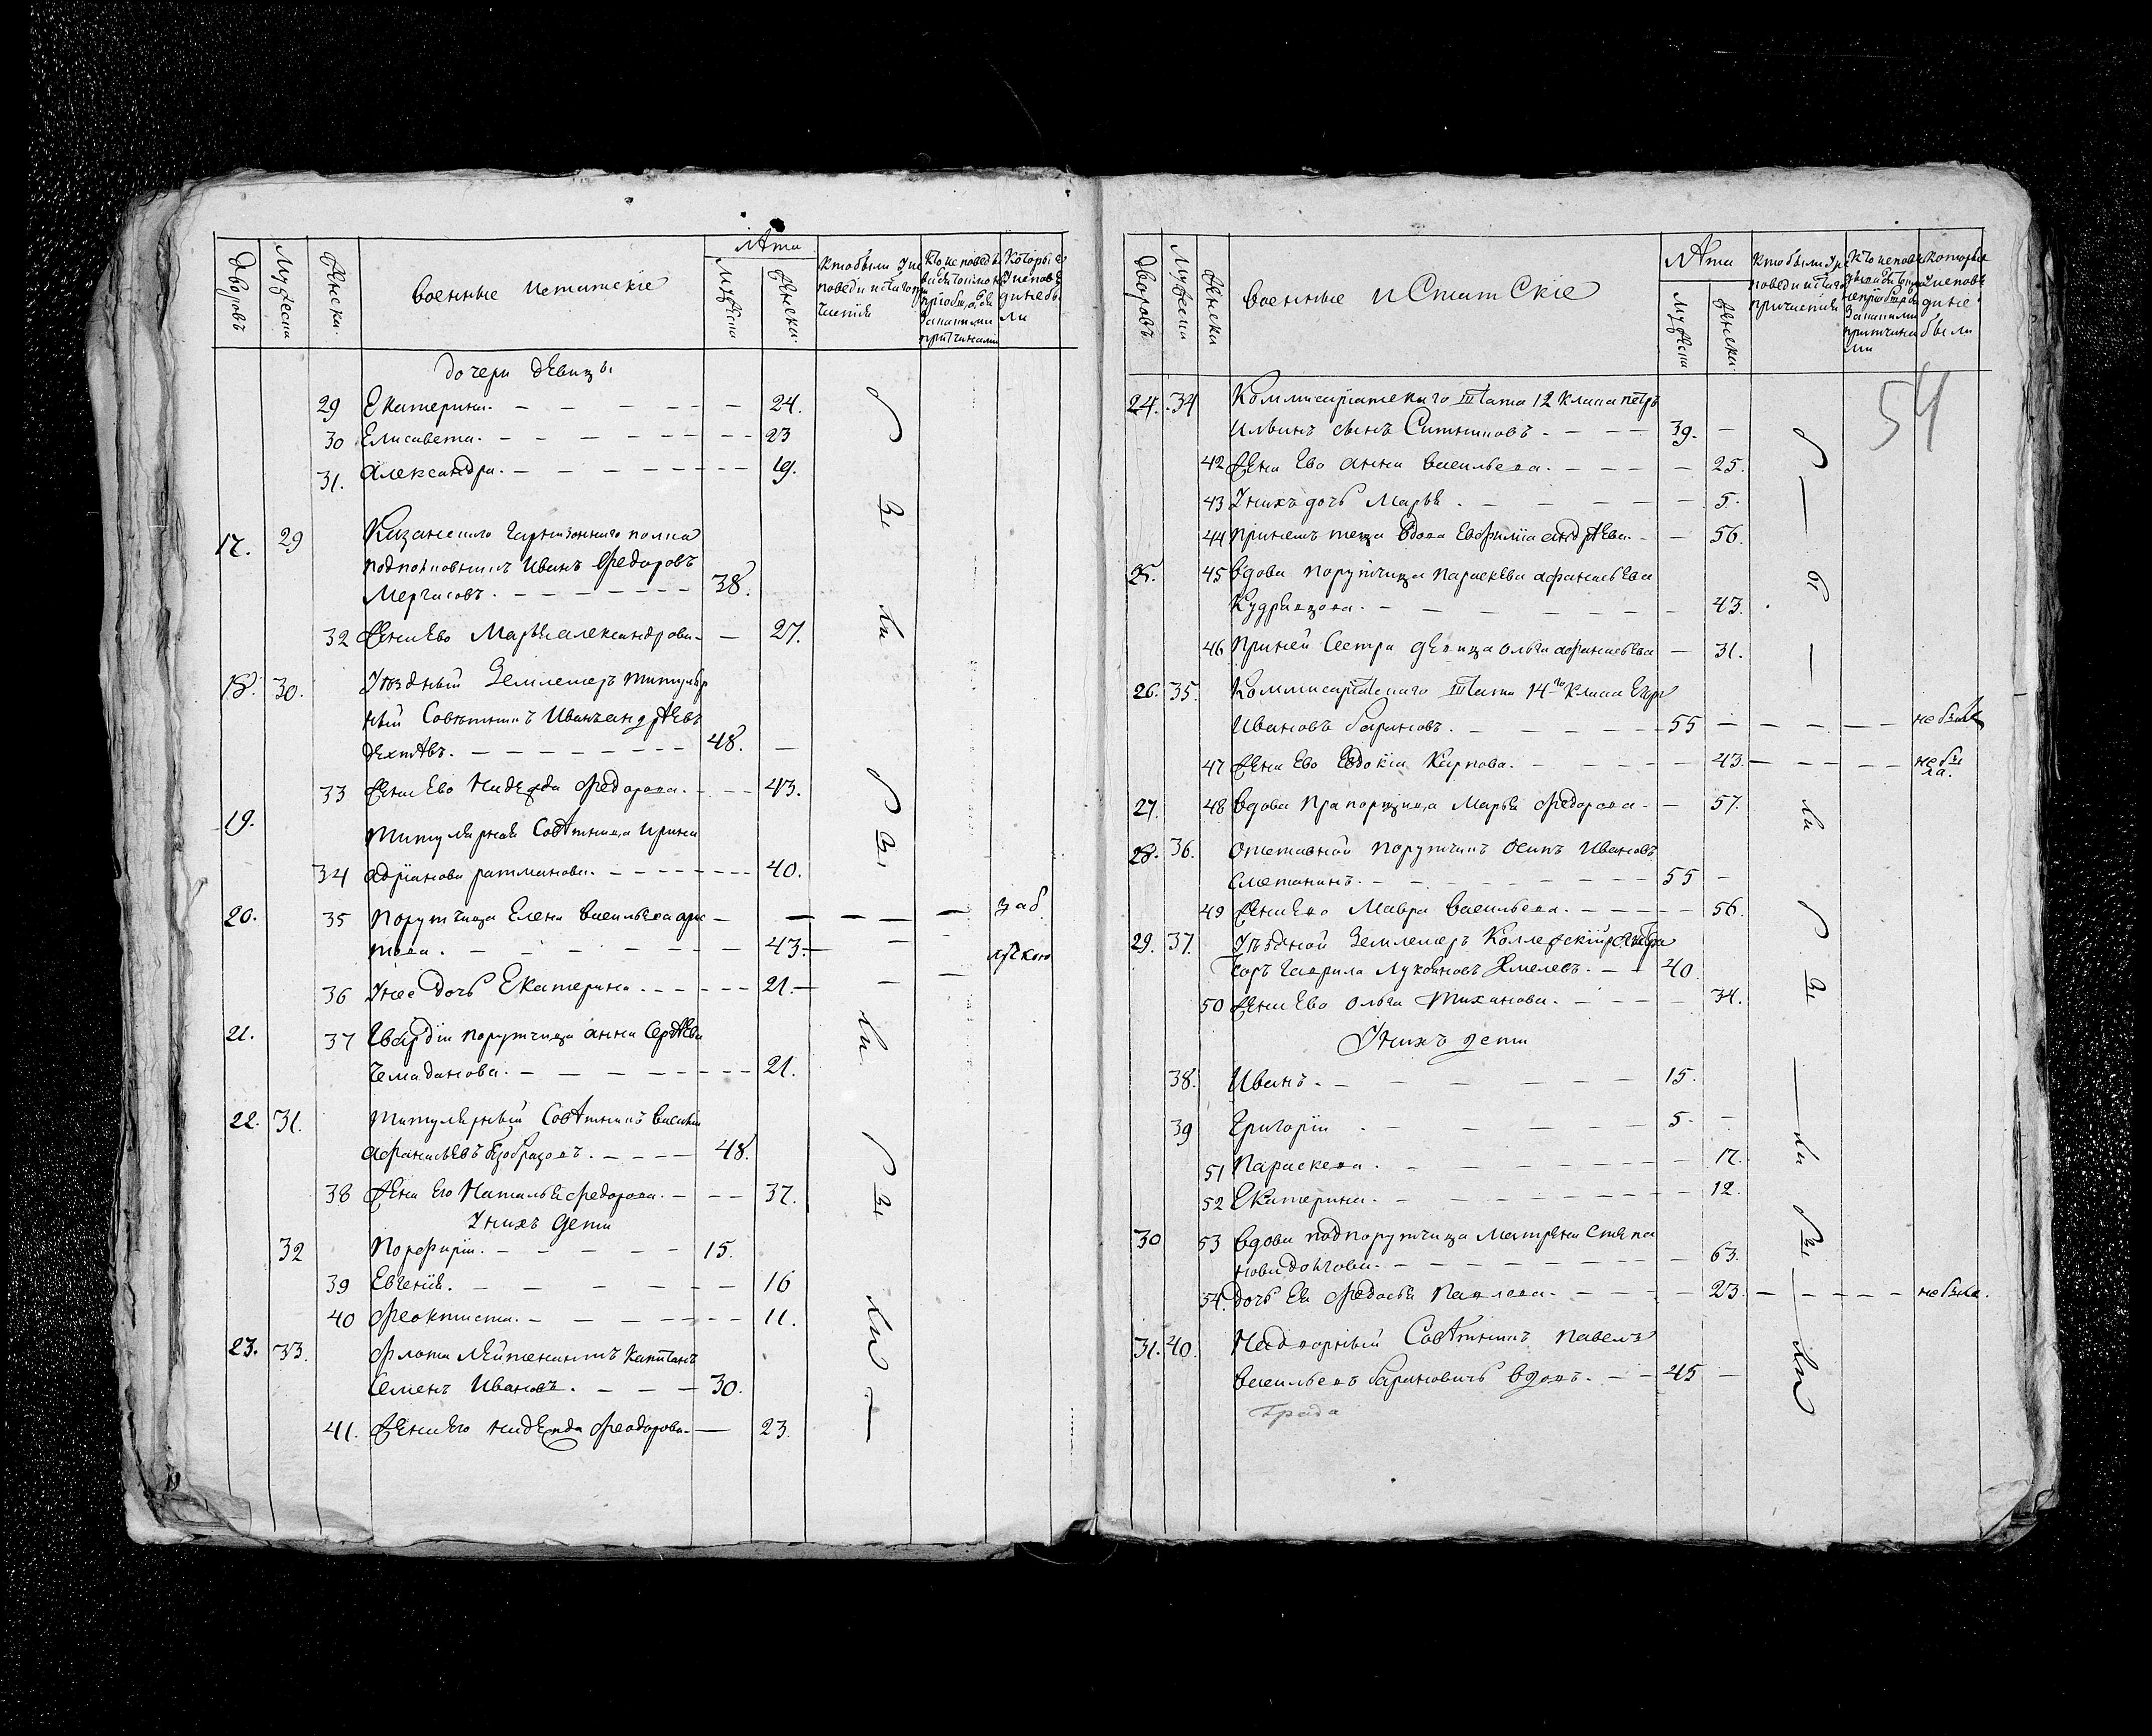 дворовъ Мужеска Женска. военные истатскіе лѣта Мужеска Женска. Кто были у исповеди и святаго причастія Кто не исповедывались Которые у исповеди не были
дочери девицы
29 Екатерина. 24.
30 Елисавета. 23
31. Александра. 19.
17. 29 Казанскаго гарнизоннаго полка
подполковникъ Иванъ Федоровъ
Мергасовъ. 38.
32 Жена Ево Марья александрова 27.
18. 30. Уездный Землемеръ титуляр
ный Советникъ Иванъ андрѣевъ
48.
33 Жена Ево Надежда Федорова. 43.
19. титулярная Совѣтница ирина
34 адріанова ратманова. 40.
20. 35 Порутчица Елена васильева
това. 43. заб
36 У нее дочь Екатерина. 21.
21. 37 Гвардіи порутчица анна Сергѣева
Чемаданова. 21.
22. 31. титулярный Совѣтникъ василий
афанасьевъ безобразовъ. 48.
38 Жена Его Наталья Федорова. 37.
У нихъ дети
32 Порфирій. 15.
39 Евгенія. 16
40 Феоктиста. 11.
23. 33. флота Лейтенантъ Капитанъ
Семенъ Ивановъ. 30.
41. Жена Его надежда Феодорова 23.
дворовъ Мужеска Женска военные и Статскіе лѣта Мужеска Женска. Кто были у исповеди и святаго причастія которые у исповѣди не были
54
24. 34 Коммисаріатскаго Штата 12 класа петръ
Ильинъ сынъ Ситниковъ 39.
42 Жена Ево анна васильева. 25.
43 У нихъ дочь Марья. 5.
44 При немъ теща вдова Евфимія андрѣева. 56.
25. 45 вдова порутчица параскева афанасьева
Кудрявцова. 43.
46 При ней Сестра девица ольга афанасьева 31.
26. 35. Коммисаріатскаго Штата 14го класа Егоръ
Ивановъ барановъ. 55 не былъ
47 Жена Ево Евдокія Карпова. 43. не бы
ла.
27. 48 вдова Прапорщица Марья Федорова. 57.
28. 36. отставной порутчикъ осипъ Ивановъ
Сметанинъ. 55
49 Жена Ево Мавра васильева. 56.
29. 37. Уездной Землемеръ Коллежскій регистра
торъ гаврила Лукояновъ Хмелевъ. 40.
50 Жена Ево ольга 34.
У нихъ дети
38. Иванъ. 15.
39 Григорій 5.
51 Параскева. 17.
52 Екатерина. 12.
30 53 вдова подпорутчица матрена степа
нова долгова. 63.
54. дочь Ея Федосья Павлова. 23. не была.
31. 40. Надворный Совѣтникъ павелъ
васильевъ барановичь вдовъ. 45
были были были были были были